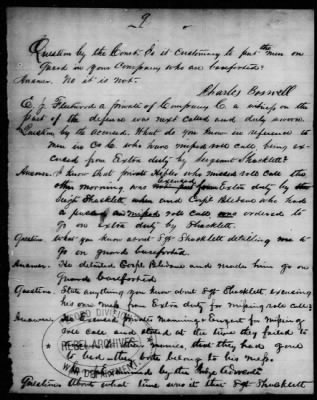 9
Question by the Court. Is it customary to put the men on
Guard in your Company who are barefooted?
Answer. No it is not.
Charles Boswell
E. J. Fleetwood a private of Company C a witness on the
part of the defence was next called and duly sworn.
Question by the accused. What do you know in reference to
men in Co C who have missed roll call, being ex-
cused from Extra duty by Sergeant Shacklett?
Answer. I know that private who missed roll call the
other morning was excused from Extra duty by the
Sergt Shacklett when and Corpl Bledsoe who had
a roll call was ordered to
go on extra duty by Shacklett.
Question. What you know about Sgt Shacklett detailing men to
go on guard barefooted.
Answer. He detailed Corpl Bledsoe and made him go on
Guard barefooted.
Question. State anything you know about Sgt Shacklett excusing
his own mess from Extra duty for missing roll call?
Answer. He excused Privates Manning & for missing
roll call and stated at the time they failed to
that they had gone
to bed they both belong to his mess.
by the Judge Advocate
Question. About what time was it that Sgt Shacklett
RECORD DIVISION
REBEL ARCHIVES
WAR DEPARTMENT